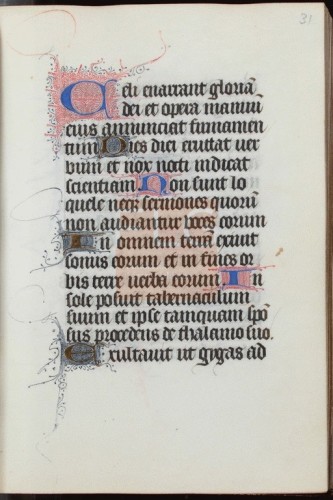 31
Celi enarrant gloriā
dei et opera manuū
eius annunciat firmamen
tum Dies diei eructat uer
bum et nox nocti indicat
scientiam Non sunt lo
quele neqȝ sermones quorū
non audiantur uoces eorum
In omnem terrā exiuit
sonus eorum et in fines or
bis terre uerba eorum. In
sole posuit tabernaculum
suum et ipse tamquam spō
sus procedens de thalamo suo.
Exultauit ut gygas ad